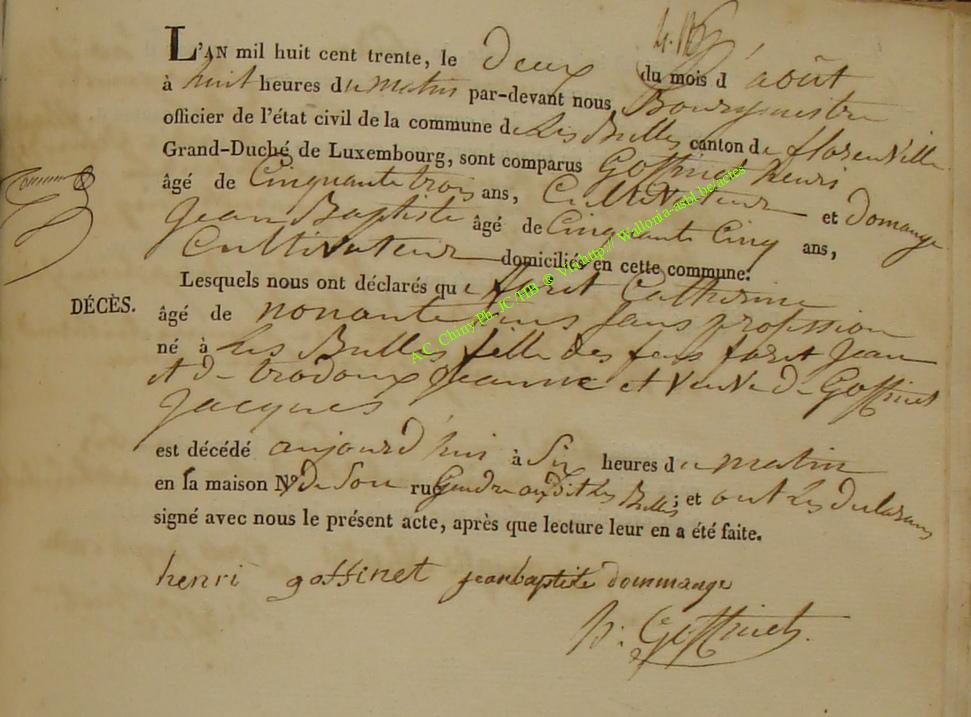 L'AN mil huit cent trente, le deux du mois d'août
à huit heures du matin par-devant nous, Bourgmestre
officier de l'état civil de la commune de Les Bulles canton de florenville
Grand-Duché de Luxembourg, sont comparus Goffinet henri
âgé de Cinquante trois ans, Cultivateur et Domange
Jean Baptiste âgé de Cinquante Cinq ans,
Cultivateur domiciliés en cette commune.
Lesquels nous ont déclarés que foret Catherine
DÉCÈS. âgé de nonante ans sans profession
né à Les Bulles fille des feus foret Jean
et de trodoux Jeanne et veuve de Goffinet
Jacques
est décédé aujourd'hui à Six heures du matin
en sa maison N° de son rue Gendre audit Les Bulles; et ont les déclarans
signé avec nous le présent acte, après que lecture leur en a été faite.
henri goffinet jean baptiste dommange
h: Goffinet
A.C. Chiny Ph. JC HB @ V http://Wallonia-asbl.be actes